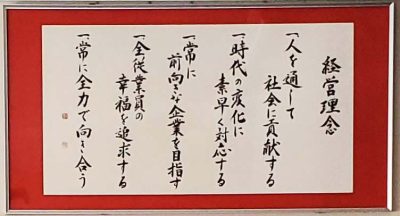 経営理念
一、人を通して
社会に貢献する
一、時代の変化に
素早く対応する
一、常に
前向きな企業を目指す
一、全従業員の
幸福を追求する
一、常に全力で向き合う